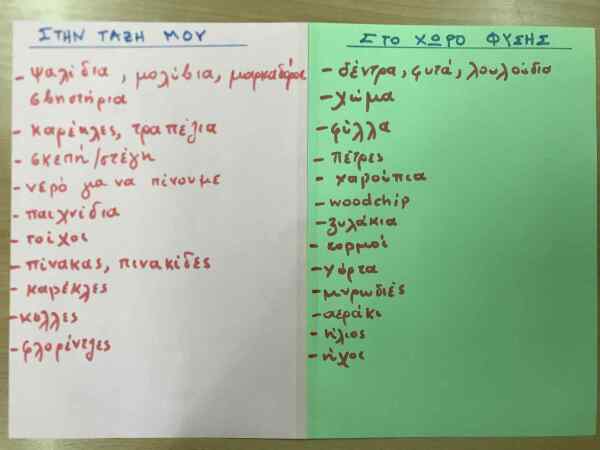 ΣΤΗΝ ΤΑΞΗ ΜΟΥ
- ψαλίδια, μολύβια, μαρκαδόροι
σβηστήρια
- καρέκλες, τραπέζια
- σκεπή/στέγη
- νερό για να πίνουμε
- παιχνίδια
- τοίχοι
- πίνακας, πινακίδες
- καρέκλες
- κόλλες
- φλορέντζες
ΣΤΟ ΧΩΡΟ ΦΥΣΗΣ
- δέντρα, φυτά, λουλούδια
- χώμα
- φύλλα
- πέτρες
- χαρούπια
- woodchip
- ξυλάκια
- κορμοί
- χόρτα
- μυρωδιές
- αεράκι
- ήλιος
- ήχοι